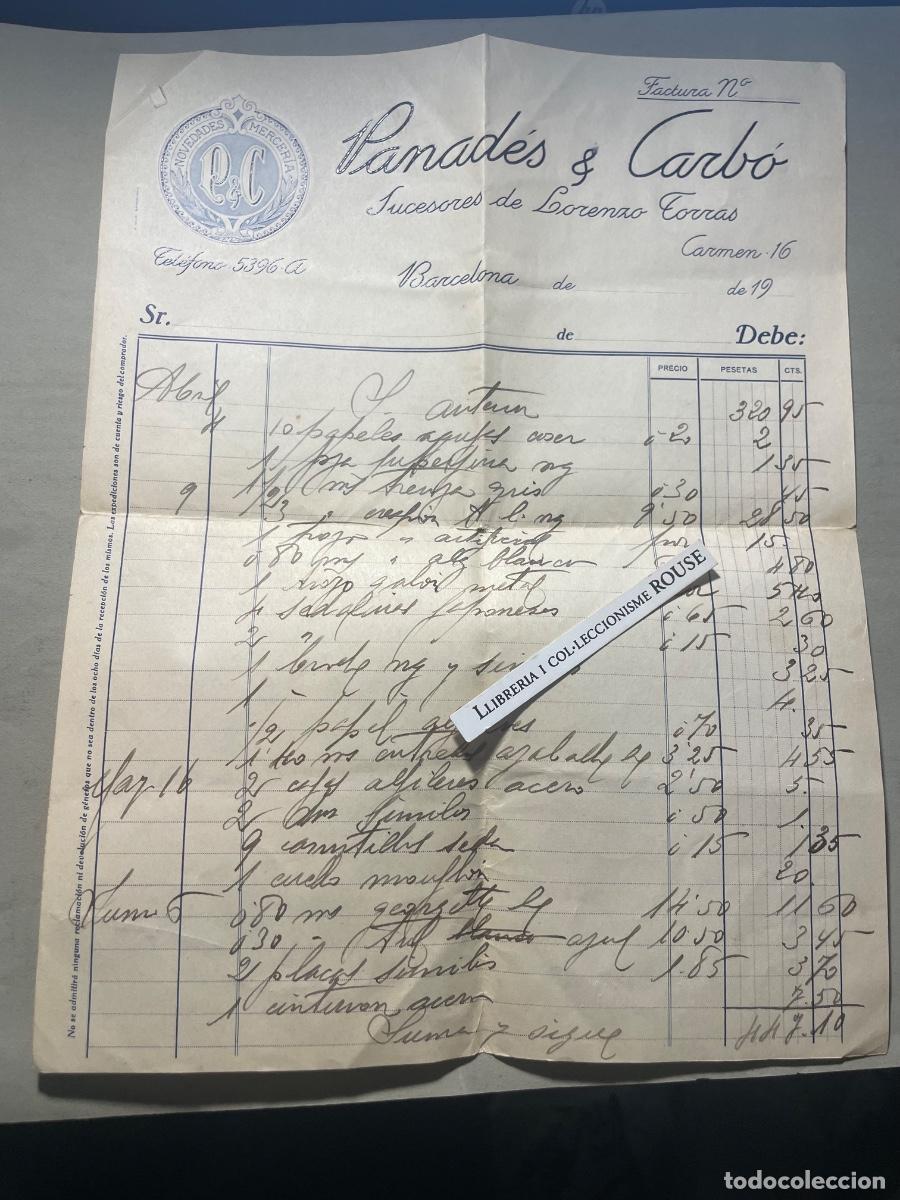 Factura Nº
NOVEDADES MERCERIA
P&C
Panadés & Carbó
Sucesores de Lorenzo Torras
Carmen·16
Teléfono 5396·A
Barcelona de de 19
Sr. de Debe:
PRECIO PESETAS CTS.
Abril S. anterior 320 95
4 10 papeles agujas coser 0'20 2
1 pza superfina ng 1 35
9 1 1/2 ms trenza gris 0'30 45
3 " crespon A li. ng 9'50 28 50
1 trozo " artificial por 15.
0'80 ms " alb blanco 4 80
1 trozo galon metal 5 45
4 sedalinas japonesas 0'65 2 60
2 " 0'15 30
1 ng y 3 25
1 4.
1/2 papel 0'70 35
1'40 ms 3'25 4 55
May. 16 2 cajas alfileres acero 2'50 5.
2 similis 0'50 1.
9 canutillos seda 0'15 1 35
1 cuello mouflon 20.
Junio 5 0'80 ms georgette 14'50 11 60
0'30 " azul 10'50 3 45
2 placas similis 1.85 3 70
1 cinturon acero 7.50
Suma y sigue 447.10
No se admitirá ninguna reclamación ni devolución de géneros que no sea dentro de los ocho días de la recepción de los mismos. Las expediciones son de cuenta y riesgo del comprador.
LLIBRERIA I COL·LECCIONISME ROUSE
todocoleccion